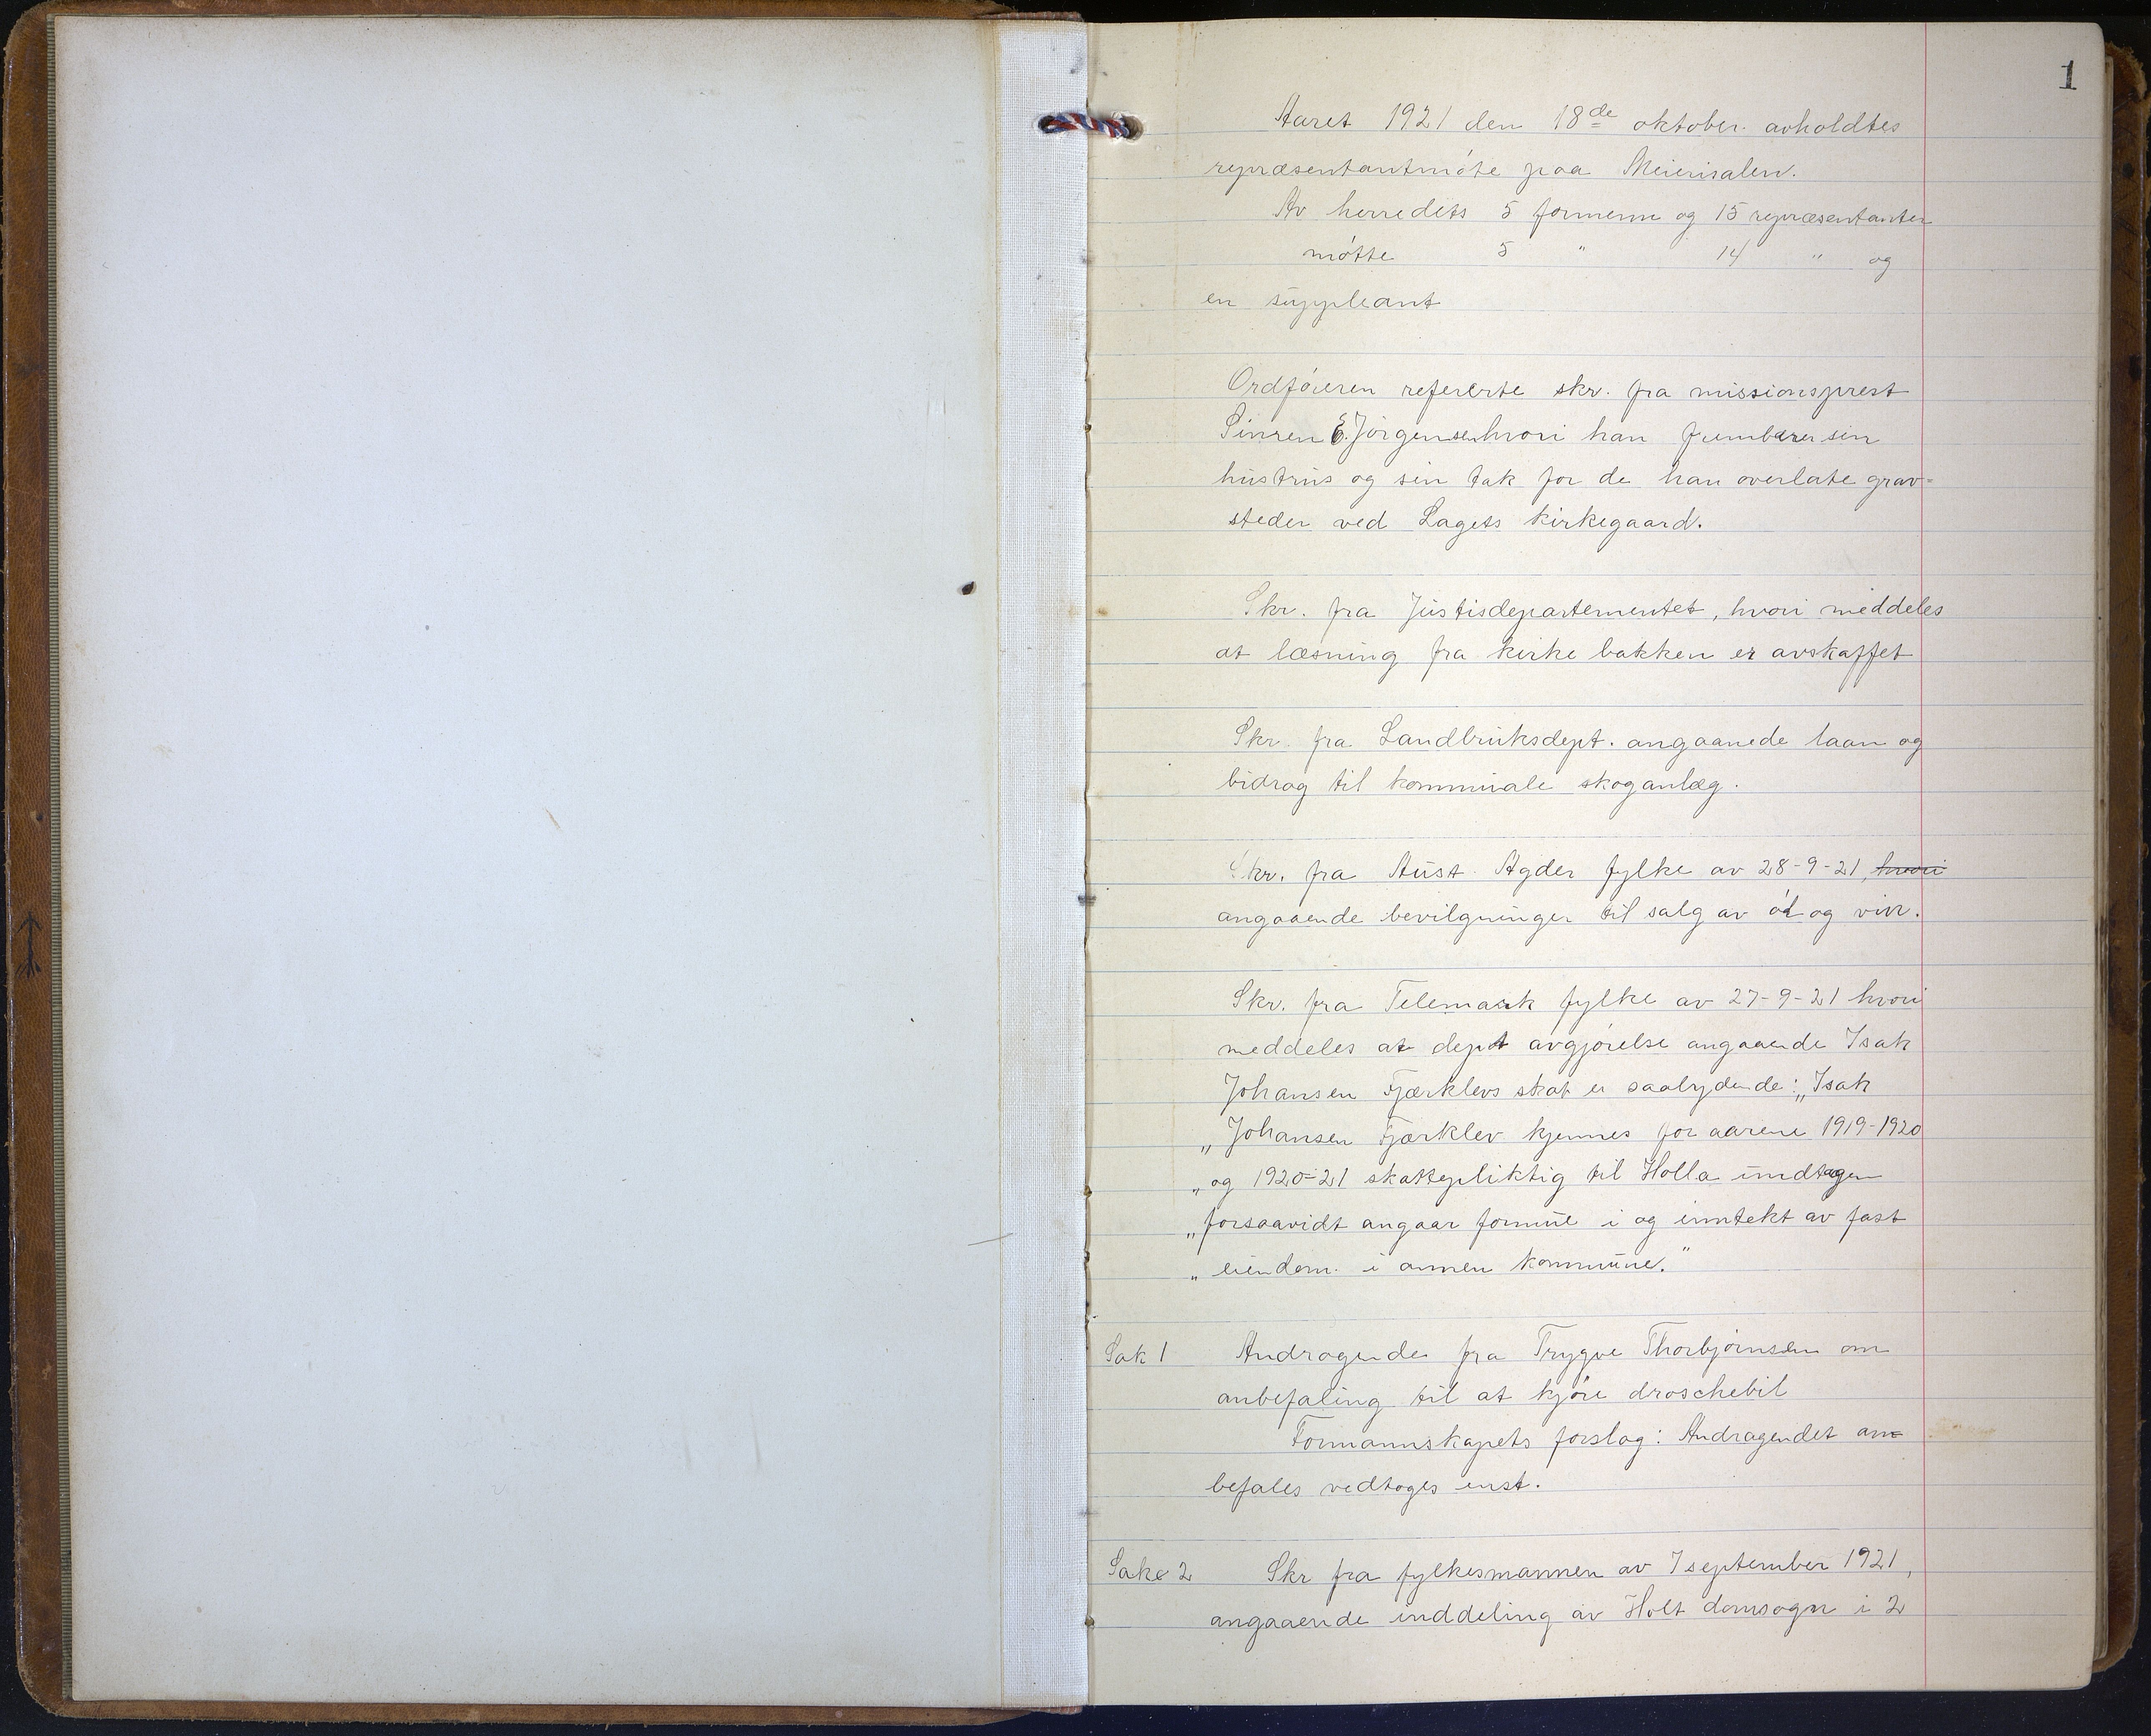 1
Aaret 1921 den 18de oktober avholdtes
repræsentantmöte paa Meierisalen.
Av herredets 5 formenn og 15 repræsentanter
mötte 5 " 14 " og
en suppleant
Ordföreren refererte skr. fra missionsprest
E. Jörgensen hvori han frembærer sin
hustrus og sin tak for de han overlate grav-
steder ved Lagets kirkegaard.
Skr. fra Justisdepartementet, hvori meddeles
at læsning fra kirke bakken er avskaffet
Skr. fra Landbruksdept. angaanede laan og
bidrag til kommunale skoganlæg.
Skr. fra Aust-Agder fylke av 28-9-21, hvori
angaaende bevilgninger til salg av öl og vin.
Skr. fra Telemark fylke av 27-9-21 hvori
meddeles at dept avgjörelse angaaende Isak
Johansen Fjærklevs skat er saalydende: „Isak
„Johansen Fjærklev kjennes for aarene 1919-1920
„og 1920-21 skattepliktig til Holla undtagen
„forsaavidt angaar formue i og inntekt av fast
„eiendom i annen kommune."
Sak 1 Andragende fra Trygve Thorbjörnsen om
anbefaling til at kjöre droschebil
Formannskapets forslag: Andragendet an-
befales vedtoges enst.
Sak 2 Skr fra fylkesmannen av 7 september 1921,
angaaende inddeling av Holt domsogn i 2